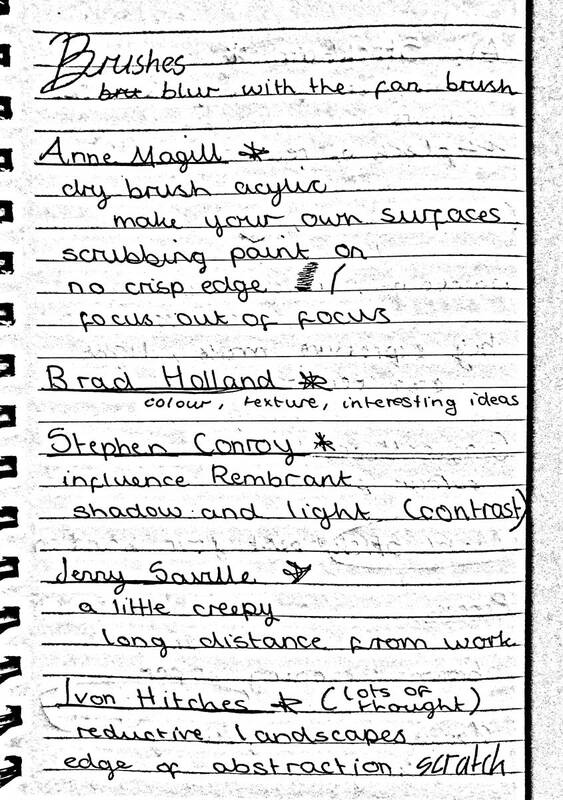 Brushes
bru blur with the fan brush
Anne Magill *
dry brush acylic
make your own surfaces
scrubbing paint on
no crisp edge
focus out of focus
Brad Holland *
colour, texture, interesting ideas
Stephen Conroy *
influence Rembrant
shadow and light (contrast)
Jerry Saville
a little creepy
long distance from work
Ivon Hitches * (lots of thought)
reductive landscapes
edge of abstraction scratch